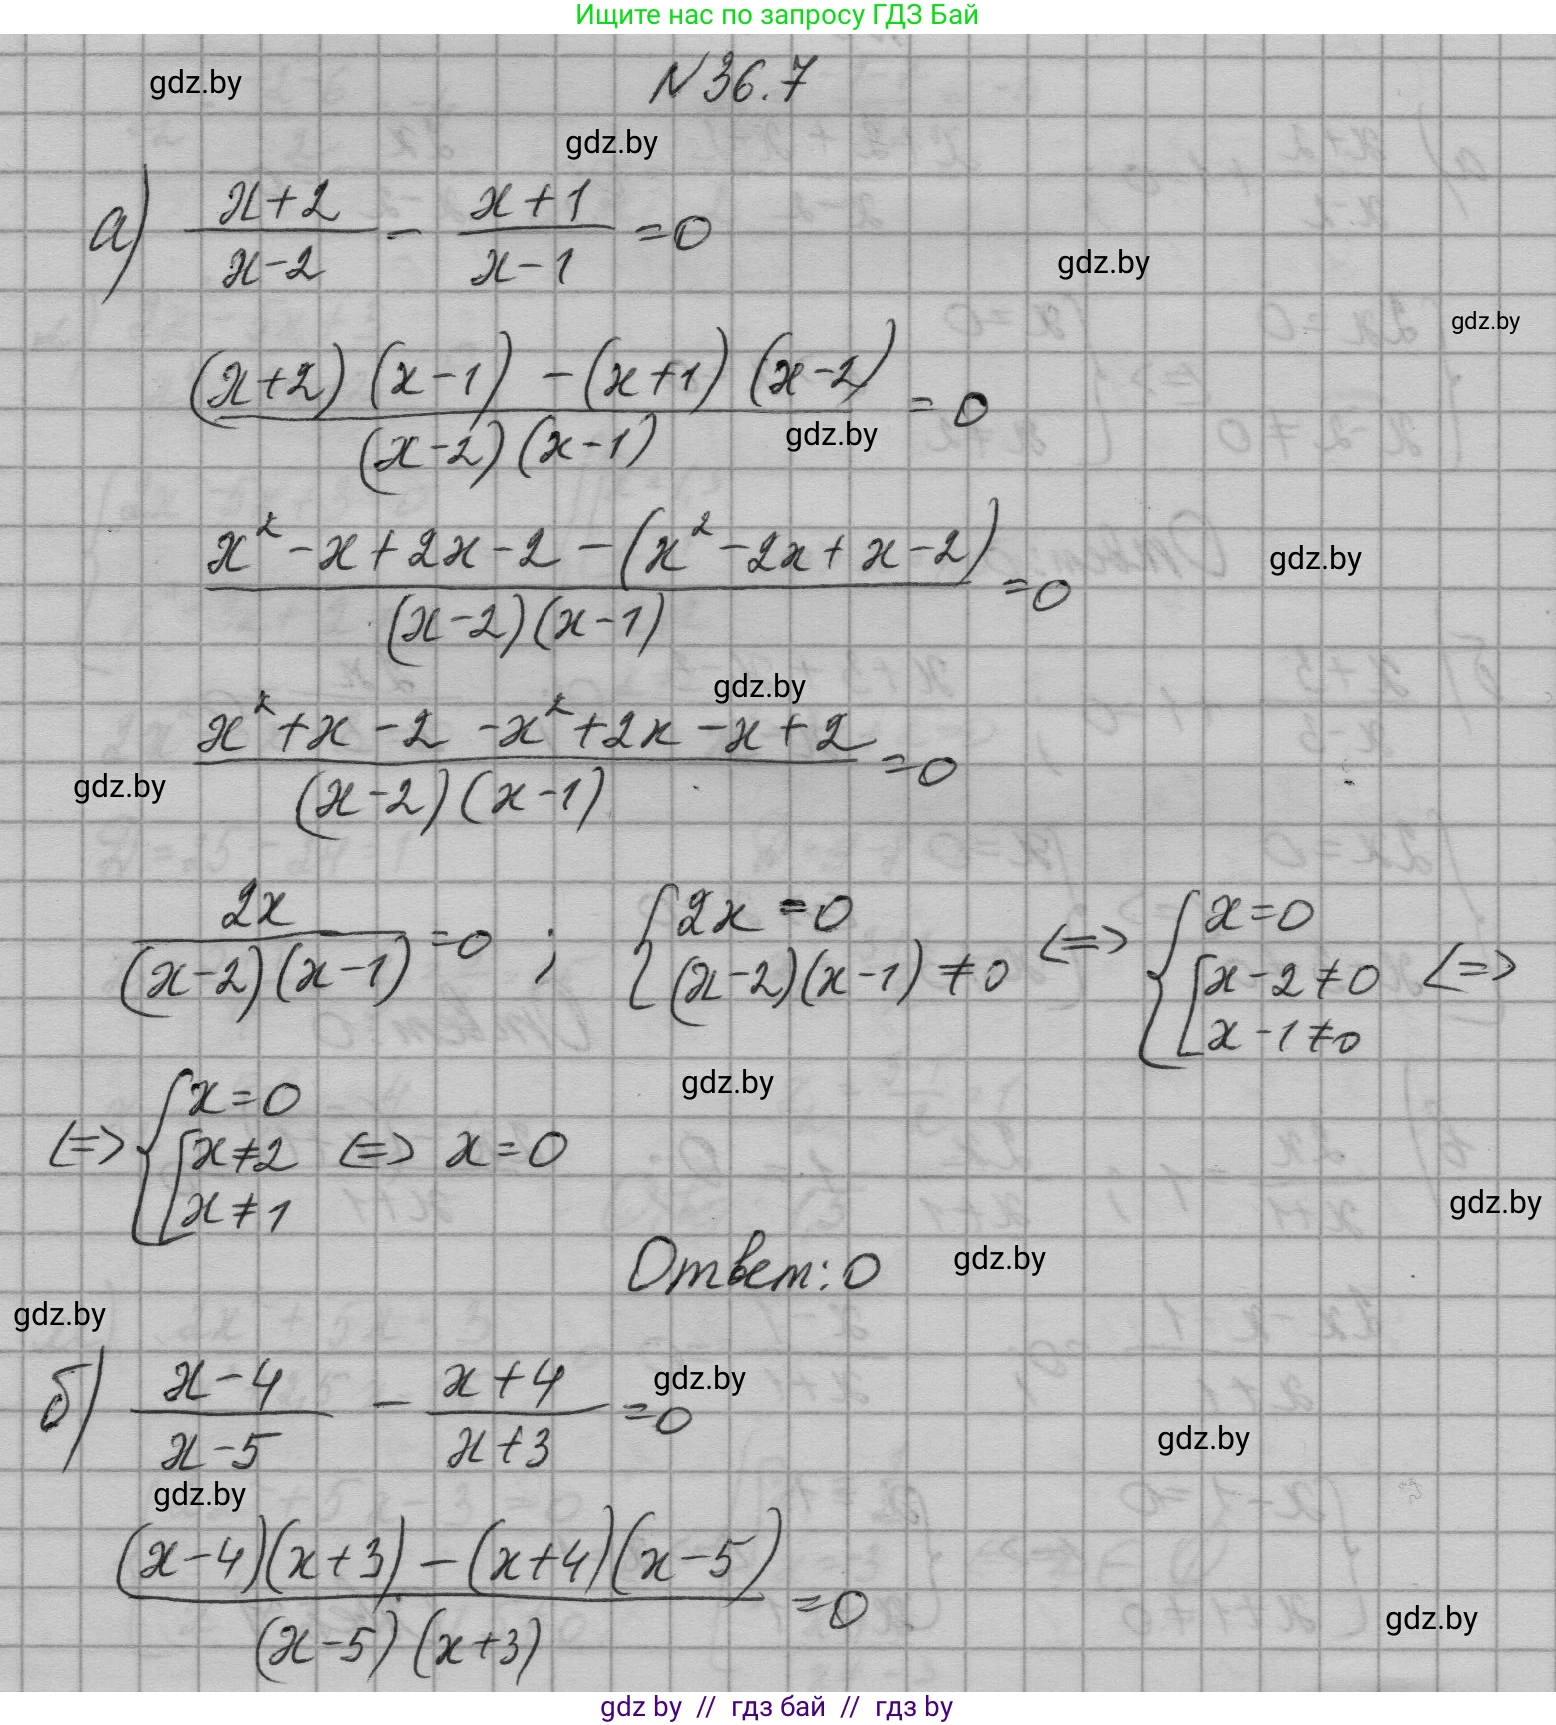 Ищите нас по запросу ГДЗ Бай
N 36.7
gdz.by
gdz.by
а) (x+2)/(x-2) - (x+1)/(x-1) =0
gdz.by
gdz.by
((x+2)(x-1) - (x+1)(x-2))/((x-2)(x-1)) = 0
gdz.by
(x² -x+2x-2 -(x² -2x+x-2))/((x-2)(x-1)) =0
gdz.by
gdz.by
(x² +x-2 -x² +2x-x+2)/((x-2)(x-1)) =0
gdz.by
2x/((x-2)(x-1)) =0 ; { 2x =0 (x-2)(x-1) ≠0 <=> { x=0 [ x-2≠0 x-1≠0 <=>
gdz.by
<=> { x=0 [ x≠2 x≠1 <=> x=0
gdz.by
Ответ: 0
gdz.by
gdz.by
б) (x-4)/(x-5) - (x+4)/(x+3) =0
gdz.by
gdz.by
gdz.by
((x-4)(x+3) - (x+4)(x-5))/((x-5)(x+3)) =0
gdz.by
gdz by // гдз бай // гдз by